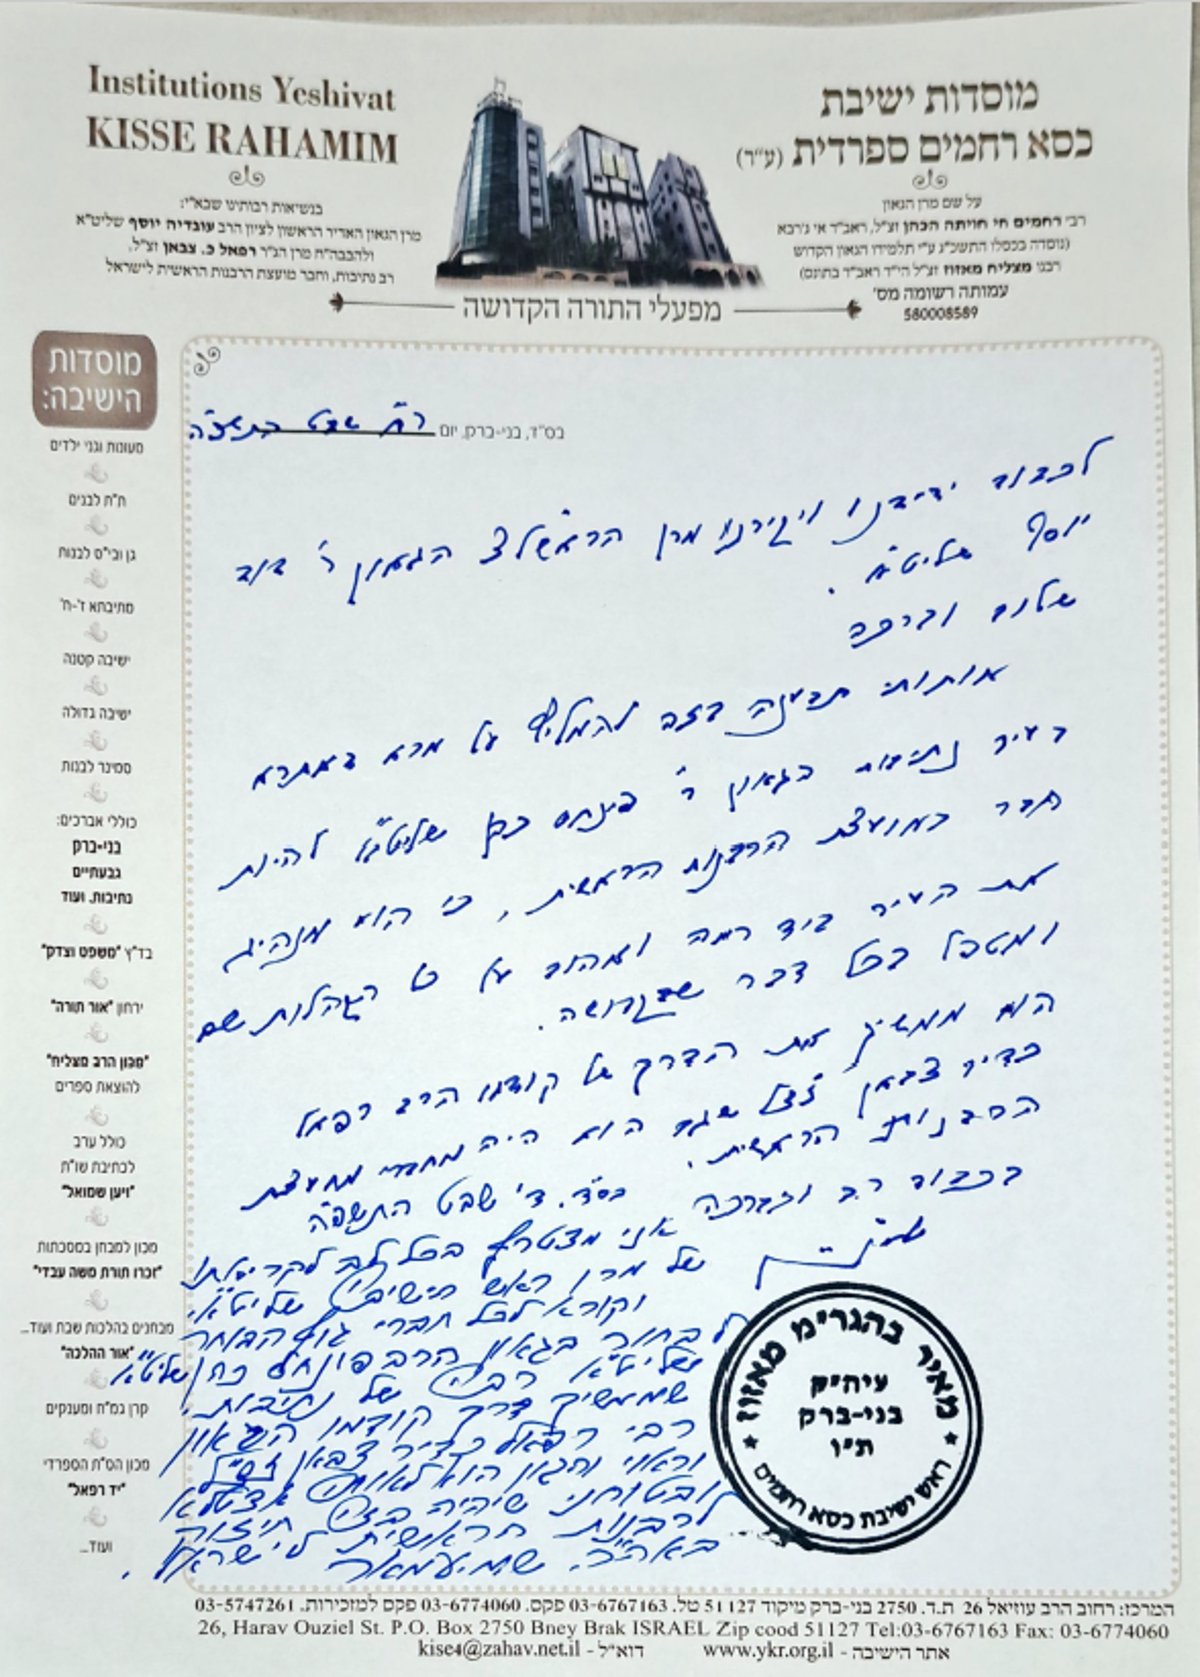 Institutions Yeshivat
KISSE RAHAMIM
בנשיאות רבותינו שבא"י:
מרן הגאון האדיר הראשון לציון הרב עובדיה יוסף שליט"א
ולהבבה"ח מרן הג"ר רפאל כ. צבאן זצ"ל,
רב נתיבות, וחבר מועצת הרבנות הראשית לישראל
מוסדות ישיבת
כסא רחמים ספרדית (ע"ר)
על שם מרן הגאון
רבי רחמים חי חויתה הכהן זצ"ל, ראב"ד אי ג'רבא
(נוסדה בכסלו התשכ"ג ע"י תלמידו הגאון הקדוש
רבנו מצליח מאזוז זצ"ל הי"ד ראב"ד בתונס)
עמותה רשומה מס'
580008589
מפעלי התורה הקדושה
מוסדות
הישיבה:
מעונות וגני ילדים
ת"ת לבנים
גן ובי"ס לבנות
מתיבתא ז'-ח'
ישיבה קטנה
ישיבה גדולה
סמינר לבנות
כוללי אברכים:
בני-ברק
גבעתיים
נתיבות, ועוד
בד"ץ "משפט וצדק"
ירחון "אור תורה"
"מכון הרב מצליח"
להוצאת ספרים
כולל ערב
לכתיבת שו"ת
"ויען שמואל"
מכון למבחן במסכתות
"זכרו תורת משה עבדי"
מבחנים בהלכות שבת ועוד...
"אור ההלכה"
קרן גמ"ח ומענקים
מכון הס"ת הספרדי
"יד רפאל"
ועוד...
בס"ד, בני-ברק, יום ר"ח שבט התשפ"ה
לכבוד ידידנו ויקירנו מרן הראשל"צ הגאון ר' דוד
יוסף שליט"א.
שלום וברכה
אותותי תבענה בזה להמליץ על מרא דאתרא
דעיר נתיבות הגאון ר' פינחס כהן שליט"א להיות
חבר במועצת הרבנות הראשית, כי הוא מנהיג
את העיר ביד רמה ואהוב על כל הקהלות שם
ומטפל בכל דבר שבקדושה.
הוא ממשיך את הדרך של קודמו הרב רפאל
כדיר צבאן זצ"ל שגם הוא היה מחברי מועצת
הרבנות הראשית.
בכבוד רב ובברכה
בס"ד. ד' שבט התשפ"ה
אני מצטרף בכל לב לקריאתו
של מרן ראש הישיבה שליט"א
וקורא לכל חברי גוף הבוחר
לבחור בגאון הרב פינחס כהן שליט"א
שליט"א רבה של נתיבות,
שממשיך דרך קודמו הגאון
רבי רפאל כדיר צבאן זצ"ל
וראוי והגון הוא
ובטוחני שיהיה בזה חיזוק
לרבנות הראשית לישראל.
מאיר בהגרי"מ מאזוז
עיה"ק
בני-ברק
ת"ו
ראש ישיבת כסא רחמים
המרכז: רחוב הרב עוזיאל 26 ת.ד. 2750 בני-ברק מיקוד 51127 טל. 03-6767163 פקס. 03-6774060 פקס למזכירות. 03-5747261
26, Harav Ouziel St. P.O. Box 2750 Bney Brak ISRAEL Zip cood 51127 Tel:03-6767163 Fax: 03-6774060
אתר הישיבה - www.ykr.org.il דוא"ל - kise4@zahav.net.il